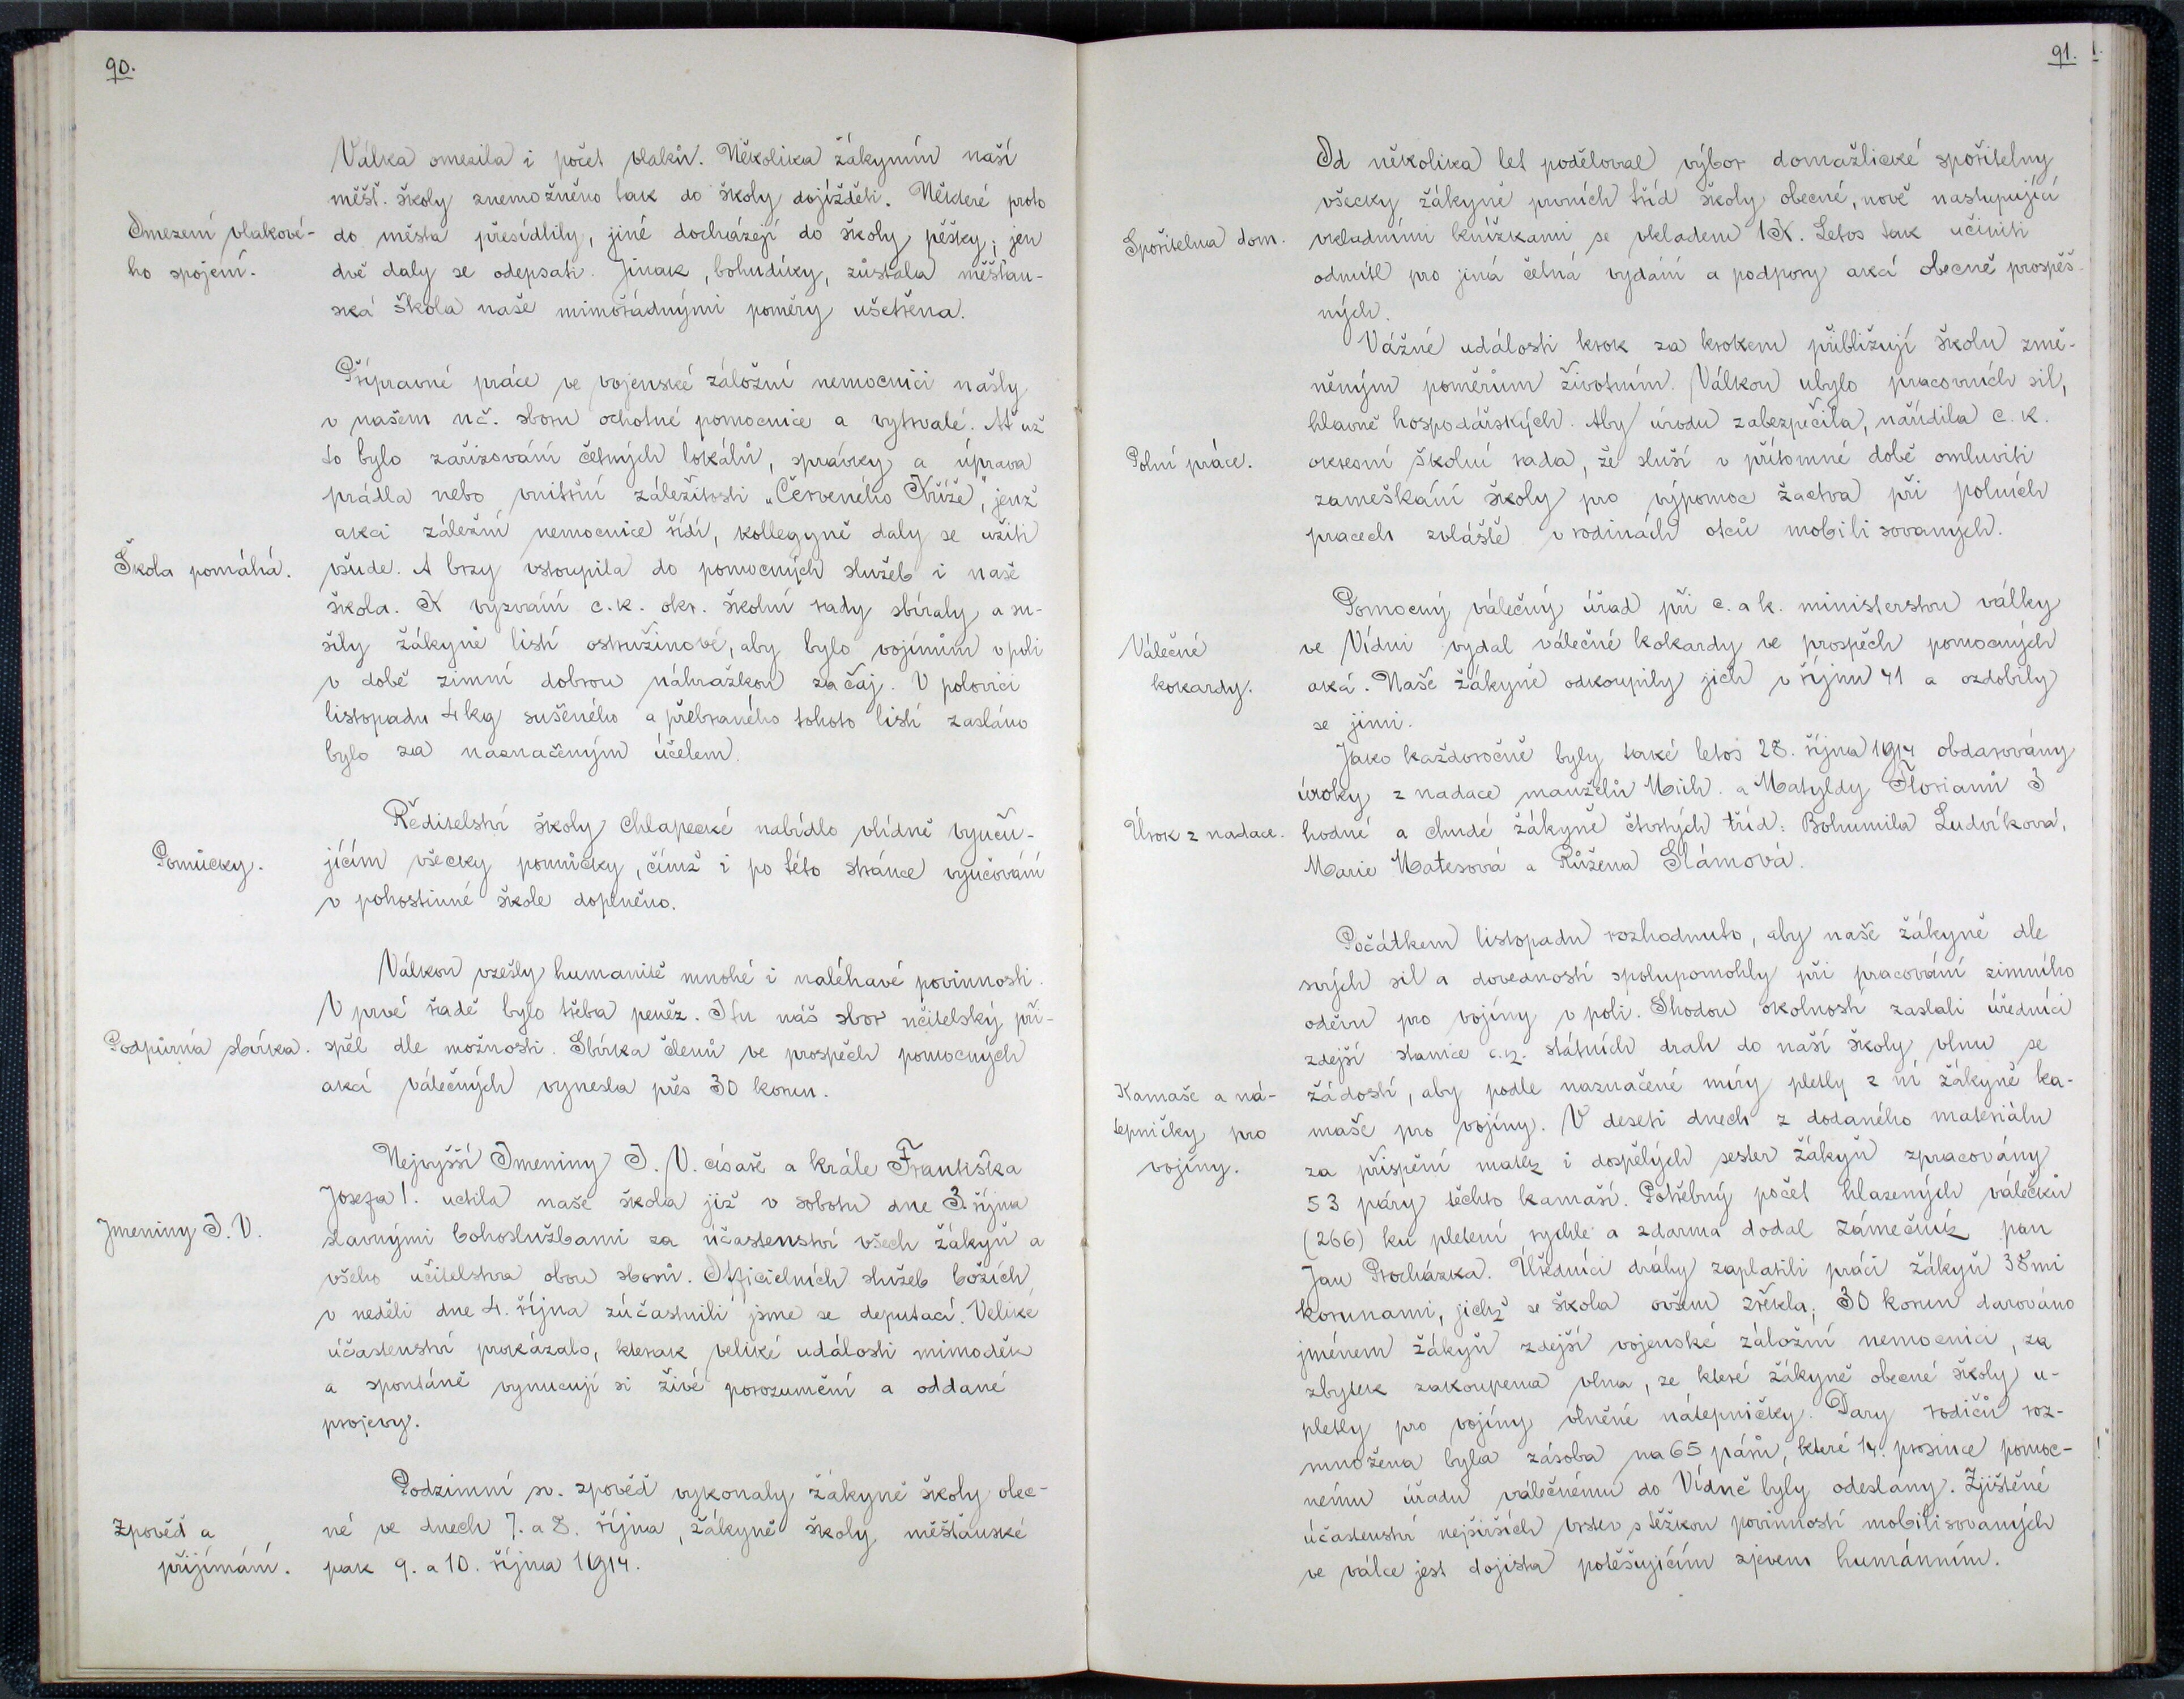 90.
Válka omezila i počet vlaků. Několika žákyním naší
měšť. školy znemožněno tak do školy dojížděti. Některé proto
Omezení vlakové-
do města přesídlily, jiné docházejí do školy pěšky; jen
ho spojení.
dvě daly se odepsati. Jinak, bohudíky, zůstala měšťan-
ská škola naše mimořádnými poměry ušetřena.
Přípravné práce ve vojenské záložní nemocnici našly
v našem uč. sboru ochotné pomocnice a vytrvalé. Ať už
to bylo zařizování četných lokálů, správky a úprava
prádla nebo vnitřní záležitosti „Červeného Kříže", jenž
akci záložní nemocnice řídí, kollegyně daly se užiti
Škola pomáhá.
všude. A brzy vstoupila do pomocných služeb i naše
škola. K vyzvání c. k. okr. školní rady sbíraly a su-
šily žákyně listí ostružinové, aby bylo vojínům v poli
v době zimní dobrou náhražkou za čaj. V polovici
listopadu 4 kg sušeného a přebraného tohoto listí zasláno
bylo za naznačeným účelem.
Ředitelství školy chlapecké nabídlo vlídně vyuču-
Pomůcky.
jícím všecky pomůcky, čímž i po této stránce vyučování
v pohostinné škole doplněno.
Válkou vzešly humanitě mnohé i naléhavé povinnosti.
V prvé řadě bylo třeba peněz. I tu náš sbor učitelský při-
Podpůrná sbírka.
spěl dle možnosti. Sbírka členů ve prospěch pomocných
akcí válečných vynesla přes 30 korun.
Nejvyšší Jmeniny J. V. císaře a krále Františka
Josefa I. uctila naše škola již v sobotu dne 3. října
Jmeniny J. V.
slavnými bohoslužbami za účastenství všech žákyň a
všeho učitelstva obou sborů. Officielních služeb božích
v neděli dne 4. října zúčastnili jsme se deputací. Veliké
účastenství prokázalo, kterak veliké události mimoděk
a spontáně vynucují si živé porozumění a oddané
projevy.
Podzimní sv. zpověď vykonaly žákyně školy obec-
Zpověď a
né ve dnech 7. a 8. října, žákyně školy měšťanské
přijímání.
pak 9. a 10. října 1914.
91.
Od několika let poděloval výbor domažlické spořitelny
všecky žákyně prvních tříd školy obecné, nově nastupující
Spořitelna dom.
vkladními knížkami se vkladem 1 K. Letos tak učiniti
odmítl pro jiná četná vydání a podpory akcí obecně prospěš-
ných.
Vážné události krok za krokem přibližují školu změ-
něným poměrům životním. Válkou ubylo pracovních sil,
hlavně hospodářských. Aby úrodu zabezpečila, nařídila c. k.
Polní práce.
okresní školní rada, že sluší v přítomné době omluviti
zameškání školy pro výpomoc žactva při polních
pracech zvláště v rodinách otců mobilisovaných.
Pomocný válečný úřad při c. a k. ministerstvu války
Válečné
ve Vídni vydal válečné kokardy ve prospěch pomocných
kokardy.
akcí. Naše žákyně odkoupily jich v říjnu 41 a ozdobily
se jimi.
Jako každoročně byly také letos 28. října 1914 obdarovány
úroky z nadace manželů Mich. a Matyldy Florianů 3
Úrok z nadace.
hodné a chudé žákyně čtvrtých tříd: Bohumila Ludvíková,
Marie Matesová a Růžena Slámová.
Počátkem listopadu rozhodnuto, aby naše žákyně dle
svých sil a dovedností spolupomohly při pracování zimního
oděvu pro vojíny v poli. Shodou okolností zaslali úředníci
zdejší stanice c. k. státních drah do naší školy vlnu se
Kamaše a ná-
žádostí, aby podle naznačené míry pletly z ní žákyně ka-
tepničky pro
maše pro vojíny. V deseti dnech z dodaného materiálu
vojíny.
za přispění matek i dospělých sester žákyň zpracovány
53 páry těchto kamaší. Potřebný počet hlazených válečků
(266) ku pletení rychle a zdarma dodal zámečník pan
Jan Procházka. Úředníci dráhy zaplatili práci žákyň 38mi
korunami, jichž se škola ovšem zřekla; 30 korun darováno
jménem žákyň zdejší vojenské záložní nemocnici, za
zbytek zakoupena vlna, ze které žákyně obecné školy u-
pletly pro vojíny vlněné nátepničky. Dary rodičů roz-
množena byla zásoba na 65 párů, které 14. prosince pomoc-
nému úřadu válečnému do Vídně byly odeslány. Zjištěné
účastenství nejširších vrstev s těžkou povinností mobilisovaných
ve válce jest dojista potěšujícím zjevem humánním.